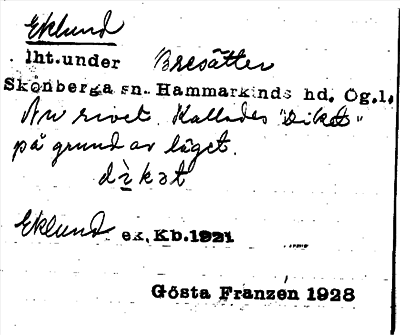 Eklund
lht.under Bresätter
Skönberga sn. Hammarkinds hd, Ög.l.
Nu rivet. Kallades "Diket"
på grund av läget.
dìkət
Eklund ex. Kb.1921
Gösta Franzén 1928